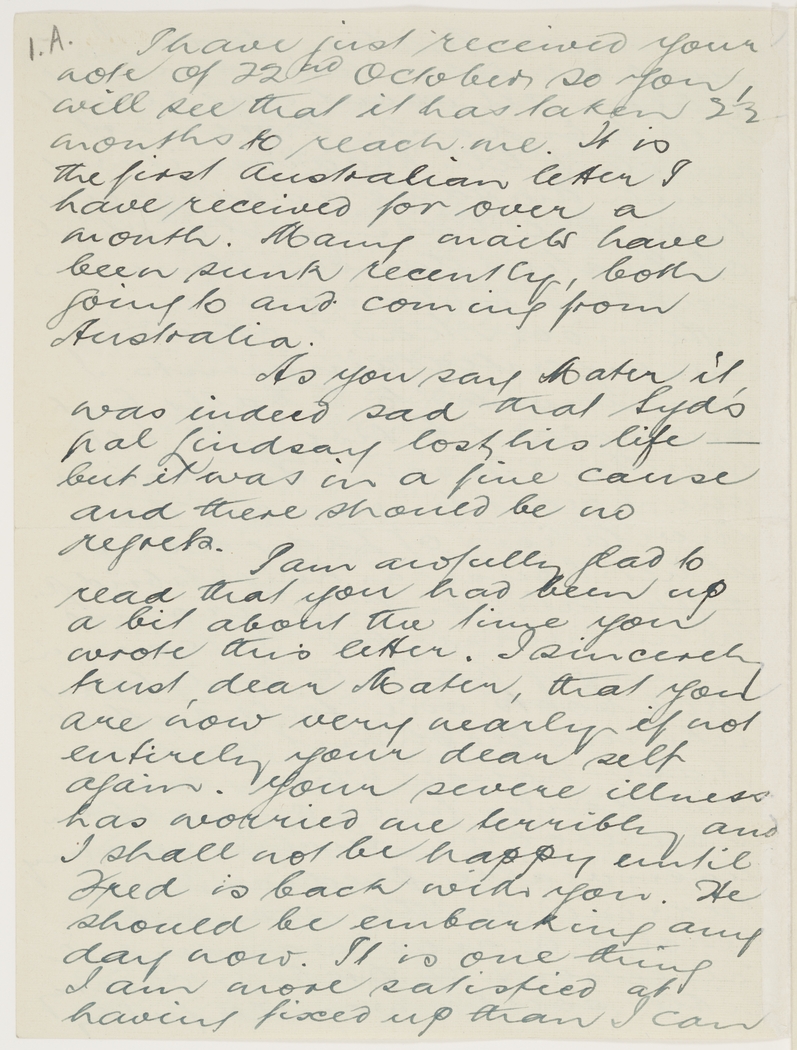 1.A.
I have just received your
note of 22nd October, so you,
will see that it has taken 2½
months to reach me. It is
the first Australian letter I
have received for over a
month. Many mails have
been sunk recently, both
going to and coming from
Australia.
As you say Mater it,
was indeed sad that Syd's
pal Lindsay lost his life —
but it was in a fine cause
and there should be no
regrets.
I am awfully glad to
read that you had been up
a bit about the time you
wrote this letter. I sincerely
trust, dear Mater, that you
are now very nearly if not
entirely your dear self
again. Your severe illness
has worried me terribly and
I shall not be happy until
Fred is back with you. He
should be embarking any
day now. It is one thing
I am more satisfied at
having fixed up than I can